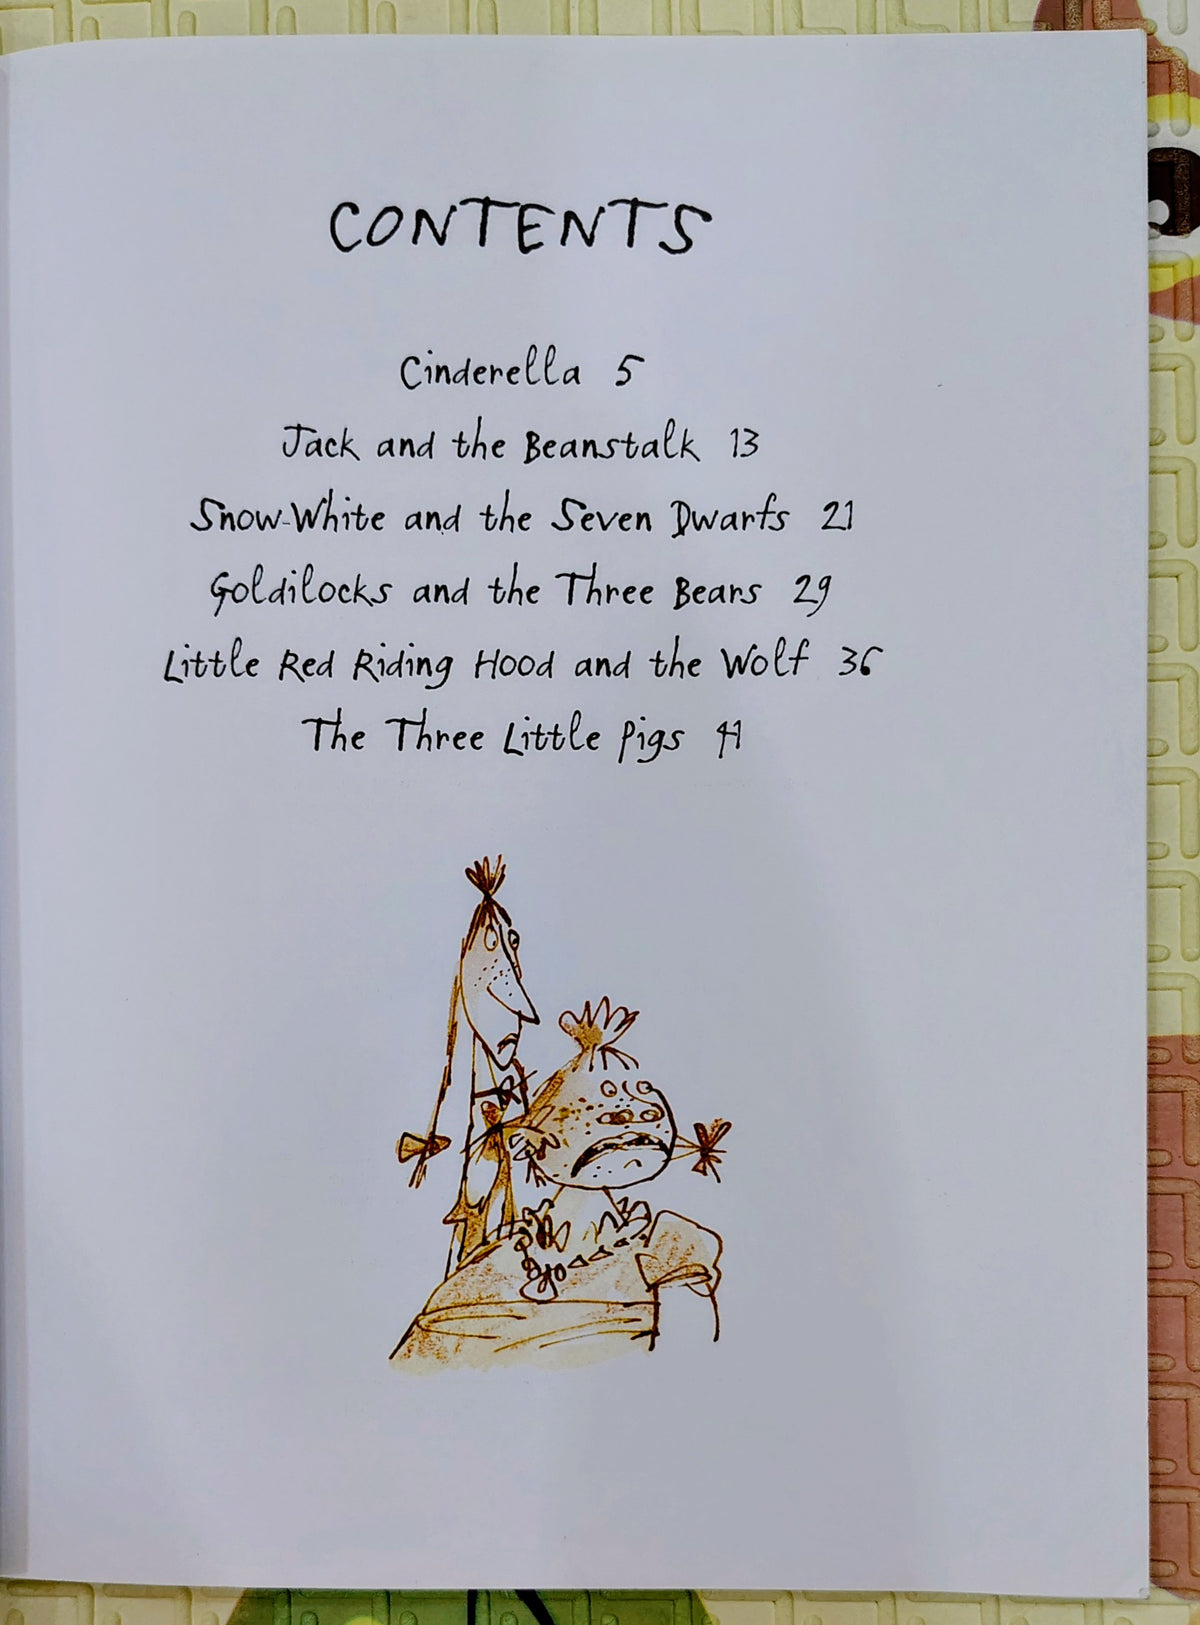 CONTENTS
Cinderella 5
Jack and the Beanstalk 13
Snow-White and the Seven Dwarfs 21
Goldilocks and the Three Bears 29
Little Red Riding Hood and the Wolf 36
The Three Little Pigs 41